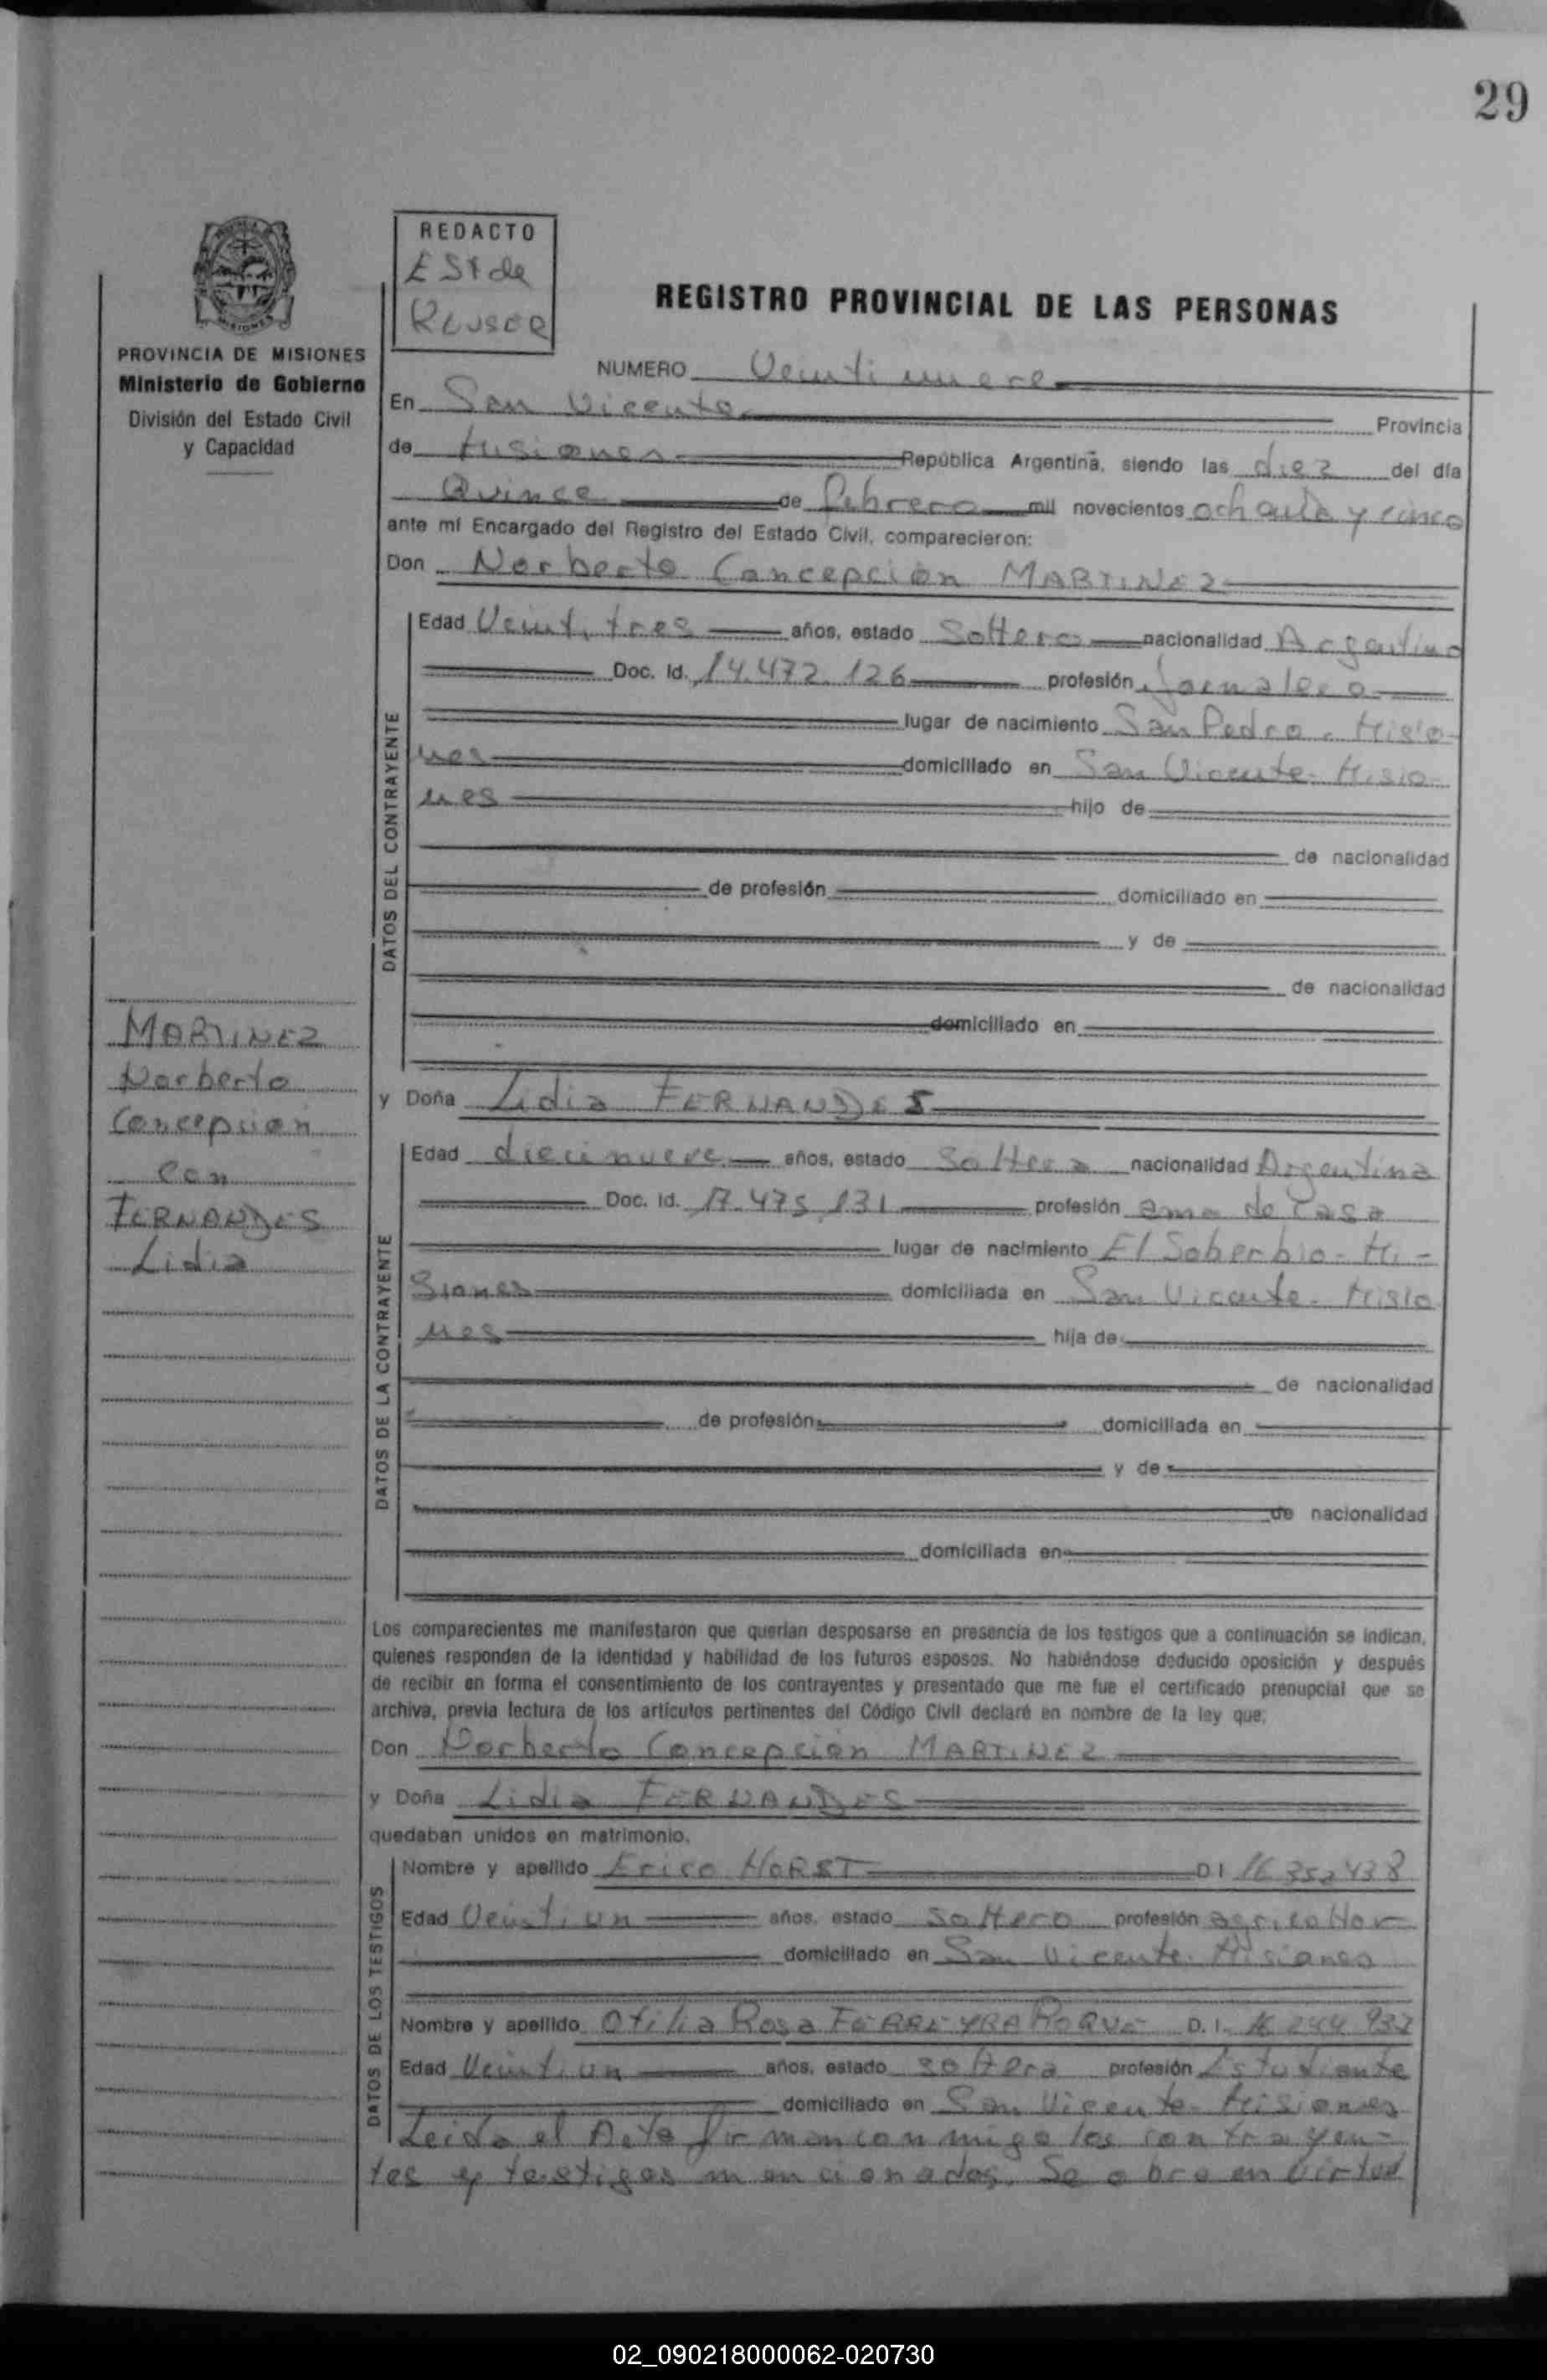 29
REDACTO
EST de
KLUSER
REGISTRO PROVINCIAL DE LAS PERSONAS
PROVINCIA DE MISIONES
Ministerio de Gobierno
División del Estado Civil
y Capacidad
NUMERO Veintinueve
En San Vicente Provincia
de Misiones República Argentina, siendo las diez del día
Quince de Febrero mil novecientos ochenta y cinco
ante mí Encargado del Registro del Estado Civil, comparecieron:
Don Norberto Concepción MARTINEZ
Edad Veintitres años, estado Soltero nacionalidad Argentino
Doc. Id. 14.472.126 profesión Jornalero
lugar de nacimiento San Pedro - Misio-
nes domiciliado en San Vicente - Misio-
nes hijo de
de nacionalidad
de profesión domiciliado en
y de
de nacionalidad
domiciliado en
DATOS DEL CONTRAYENTE
MARTINEZ
Norberto
Concepción
con
FERNANDES
Lidia
y Doña Lidia FERNANDES
Edad diecinueve años, estado Soltera nacionalidad Argentina
Doc. Id. 17.475.131 profesión ama de casa
lugar de nacimiento El Soberbio - Mi-
siones domiciliada en San Vicente - Misio
nes hija de
de nacionalidad
de profesión domiciliada en
y de
de nacionalidad
domiciliada en
DATOS DE LA CONTRAYENTE
Los comparecientes me manifestaron que querían desposarse en presencia de los testigos que a continuación se indican,
quienes responden de la identidad y habilidad de los futuros esposos. No habiéndose deducido oposición y después
de recibir en forma el consentimiento de los contrayentes y presentado que me fue el certificado prenupcial que se
archiva, previa lectura de los artículos pertinentes del Código Civil declaré en nombre de la ley que:
Don Norberto Concepción MARTINEZ
y Doña Lidia FERNANDES
quedaban unidos en matrimonio.
Nombre y apellido Erico HORST D I 16 352 438
Edad Veintiun años, estado soltero profesión agricultor
domiciliado en San Vicente - Misiones
Nombre y apellido Otilia Rosa FERREYRA ROQUE D. I. 16 244 932
Edad Veintiun años, estado soltera profesión Estudiante
domiciliado en San Vicente - Misiones
DATOS DE LOS TESTIGOS
Leida el Acta firman conmigo los contrayen-
tes y testigos mencionados. Se obro en virtud
02_090218000062-020730